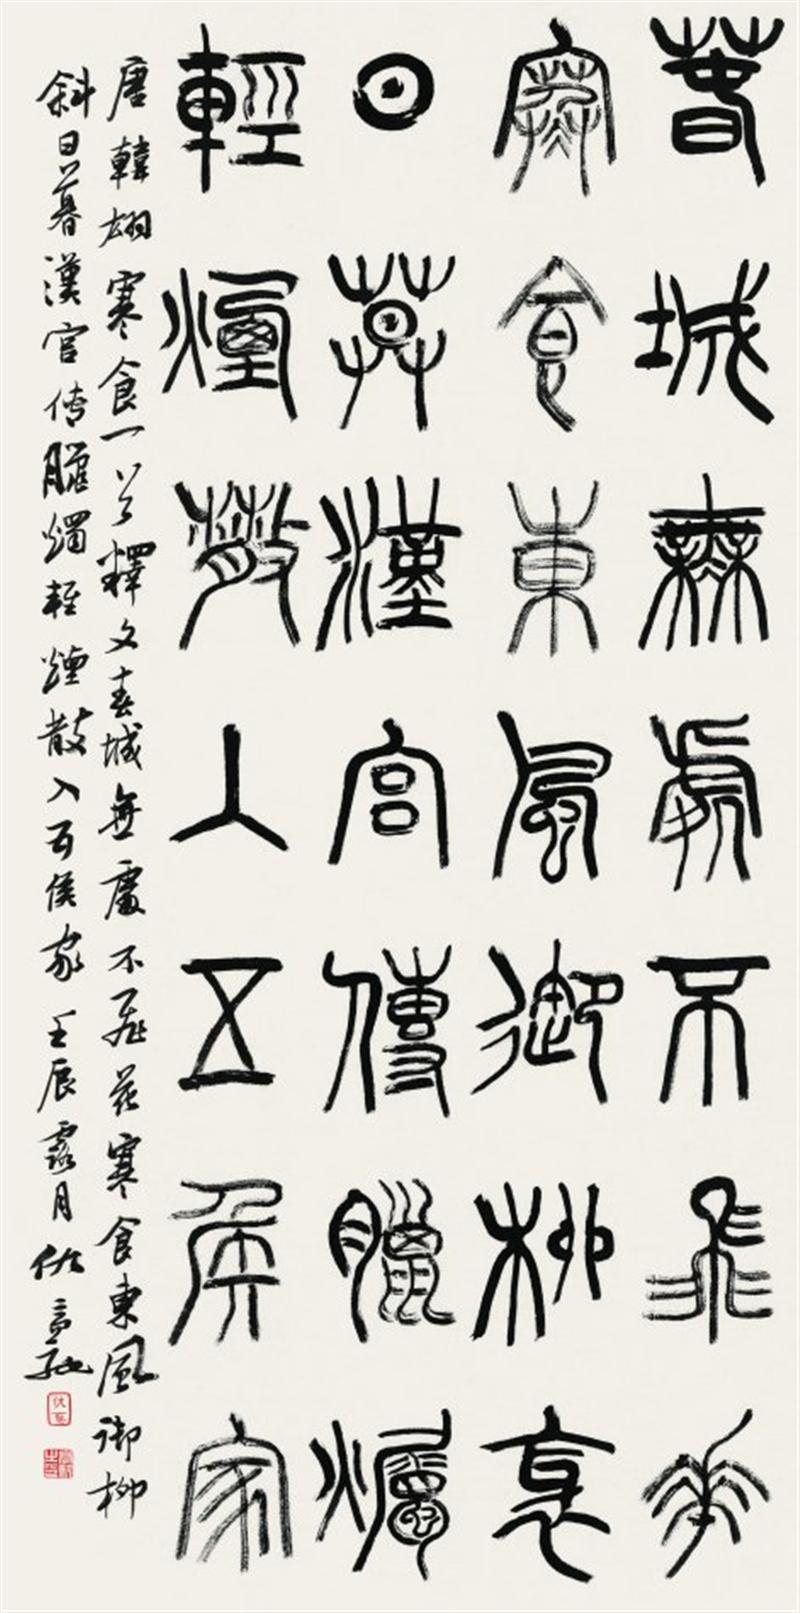 春城無處不飛花
寒食東風御柳斜
日莫漢宮傳臘燭
輕煙散入五侯家
唐韓翃寒食一首釋文春城無處不飛花寒食東風御柳
斜日暮漢宮传臘燭輕煙散入五侯家壬辰露月